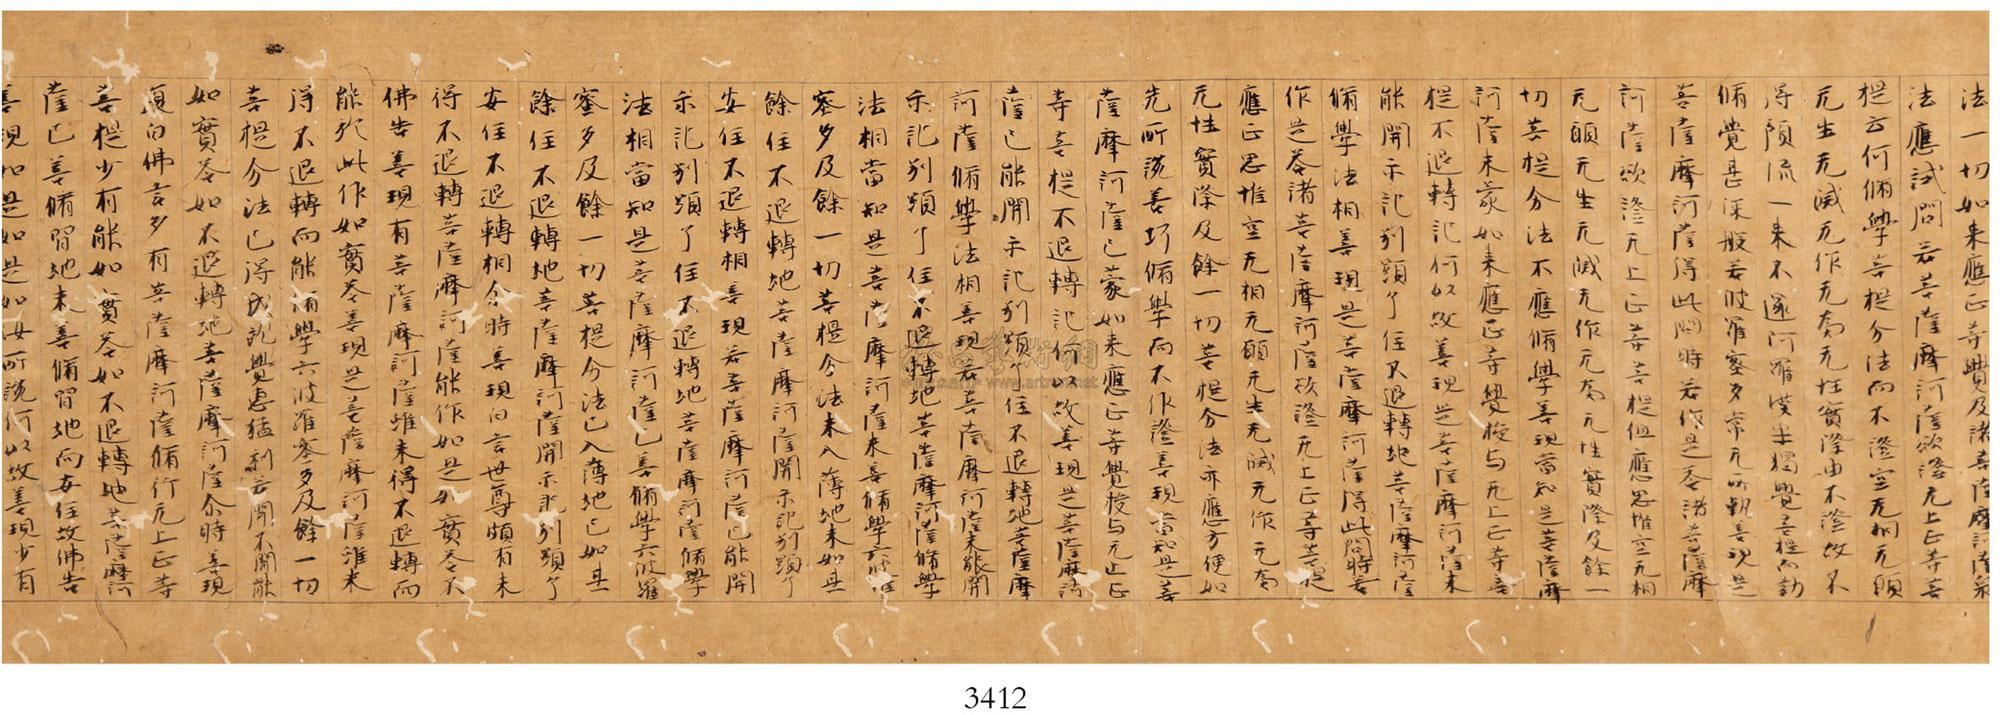 法一切如来應正等覺及諸菩薩摩訶薩衆
法應試問若菩薩摩訶薩欲證无上正等菩
提云何脩學菩提分法而不證空无相无願
无生无滅无作无為无性實際由不證故不
得預流一来不還阿羅漢果獨覺菩提而勤
脩覺甚深般若波羅蜜多常无所執善現是
菩薩摩訶薩得此問時若作是荅諸菩薩摩
訶薩欲證无上正等菩提但應思惟空无相
无願无生无滅无作无為无性實際及餘一
切菩提分法不應脩學善現當知是菩薩摩
訶薩未蒙如来應正等覺授与无上正等菩
提不退轉記何以故善現是菩薩摩訶薩未
能開示記別顯了住不退轉地菩薩摩訶薩
脩學法相善現是菩薩摩訶薩得此問時若
作是荅諸菩薩摩訶薩欲證无上正等菩提
應正思惟空无相无願无生无滅无作无為
无性實際及餘一切菩提分法亦應方便如
先所說善巧脩學而不作證善現當知是菩
薩摩訶薩已蒙如来應正等覺授与无上正
等菩提不退轉記何以故善現是菩薩摩訶
薩已能開示記別顯了住不退轉地菩薩摩
訶薩脩學法相善現若菩薩摩訶薩未能開
示記別顯了住不退轉地菩薩摩訶薩脩學
法相當知是菩薩摩訶薩未善脩學六波羅
蜜多及餘一切菩提分法未入薄地未如其
餘住不退轉地菩薩摩訶薩開示記別顯了
安住不退轉相善現若菩薩摩訶薩已能開
示記別顯了住不退轉地菩薩摩訶薩脩學
法相當知是菩薩摩訶薩已善脩學六波羅
蜜多及餘一切菩提分法已入薄地已如其
餘住不退轉地菩薩摩訶薩開示記別顯了
安住不退轉相尒時善現白言世尊頗有未
得不退轉菩薩摩訶薩能作如是如實荅不
佛告善現有菩薩摩訶薩雖未得不退轉而
能於此作如實荅善現是菩薩摩訶薩雖未
得不退轉而能脩學六波羅蜜多及餘一切
菩提分法已得成就覺慧猛利若聞不聞能
如實荅如不退轉地菩薩摩訶薩尒時善現
復白佛言多有菩薩摩訶薩脩行无上正等
菩提少有能如實荅如不退轉地菩薩摩訶
薩已善脩習地未善脩習地而安住故佛告
善現如是如是如汝所說何以故善現少有
3412